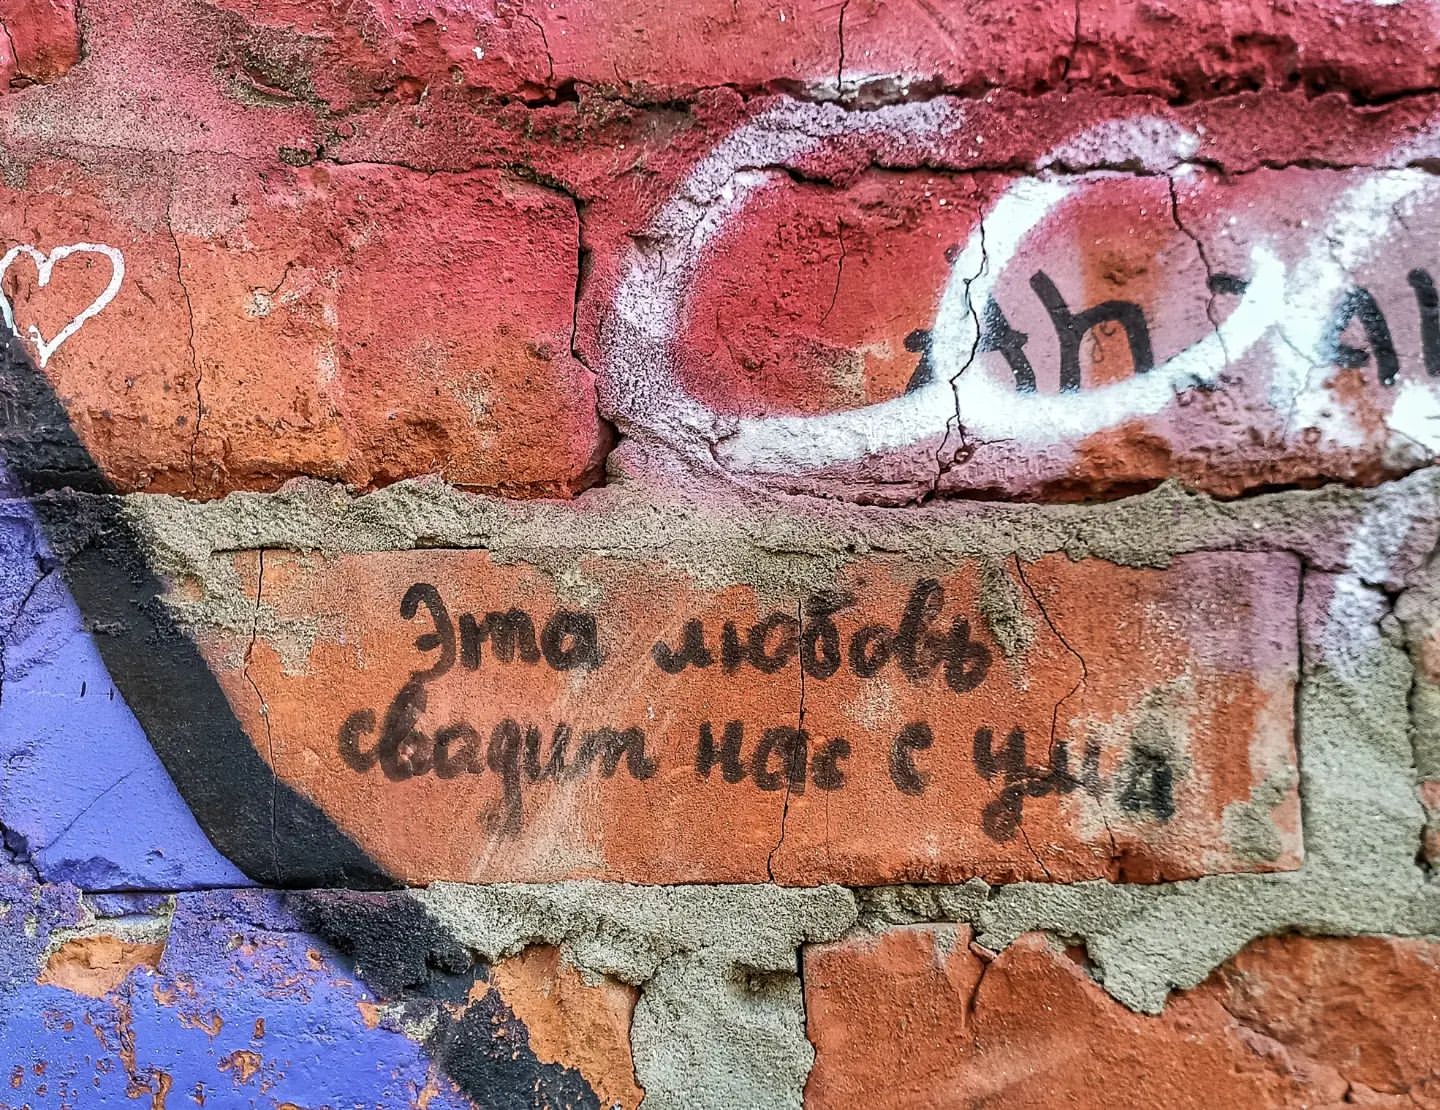 Эта любовь
сводит нас с ума